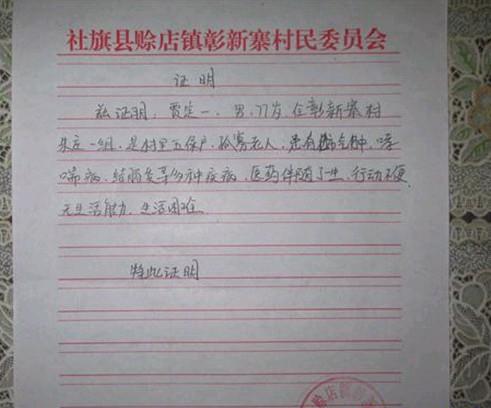 社旗县赊店镇彰新寨村民委员会
证明
兹证明,贾定一、男,77岁,住彰新寨村
一组,是村里五保户,孤寡老人,患有肺气肿,哮
喘病,结肠炎等多种疾病,医药伴随了一生,行动不便,
无生活能力,生活困难
特此证明
赊店镇彰新